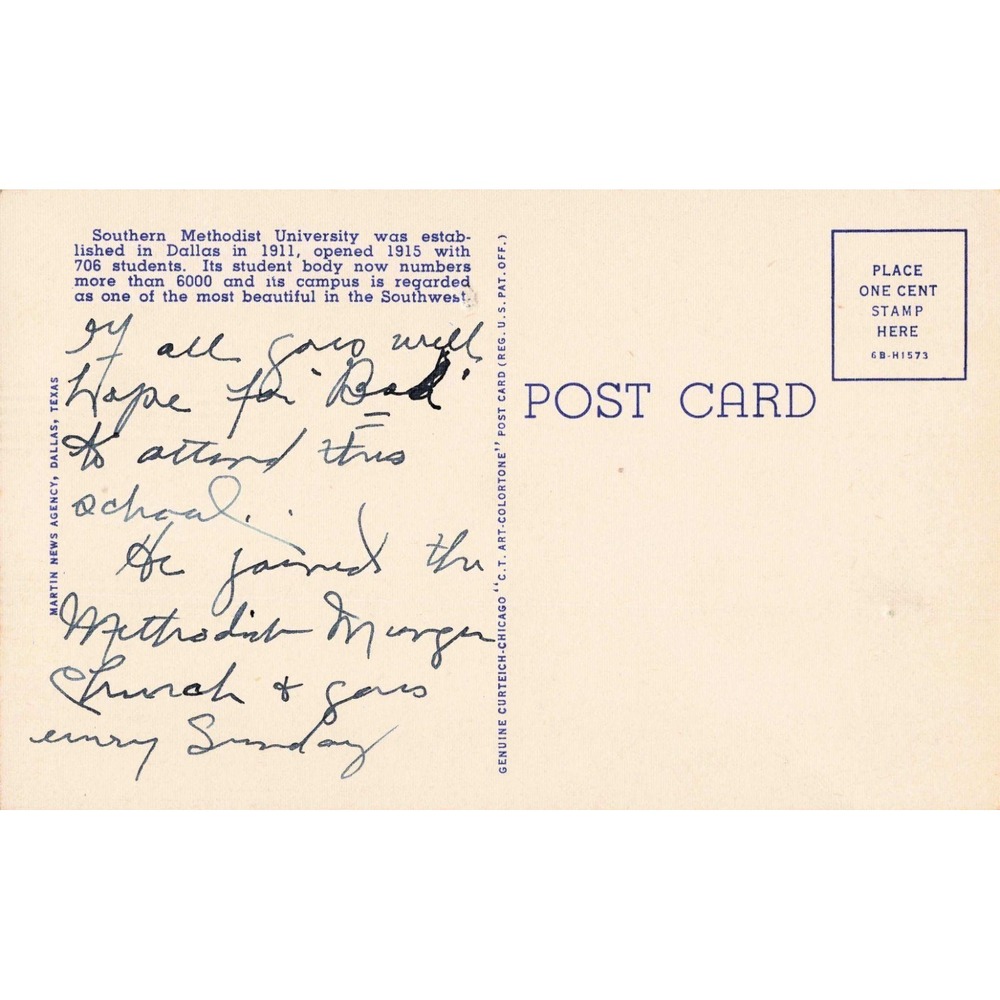 Southern Methodist University was estab-
lished in Dallas in 1911, opened 1915 with
706 students. Its student body now numbers
more than 6000 and its campus is regarded
as one of the most beautiful in the Southwest.
If all goes well
hope for
to attend this
school..
He joined the
Methodist Munger
Church & goes
every Sunday
MARTIN NEWS AGENCY, DALLAS, TEXAS
GENUINE CURTEICH-CHICAGO "C.T. ART-COLORTONE" POST CARD (REG. U.S. PAT. OFF.)
POST CARD
PLACE
ONE CENT
STAMP
HERE
6B-H1573